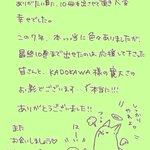 ありがたい事に、10冊も出させて頂き大変
幸せでした。
この7年、本っ当に色々ありましたが、
最終10巻まで出せたのは応援して下さった
皆さんと、KADOKAWA様の寛大さの
お影でございます…!本当に!!!
ありがとうございました!!
また
お会いしましょう